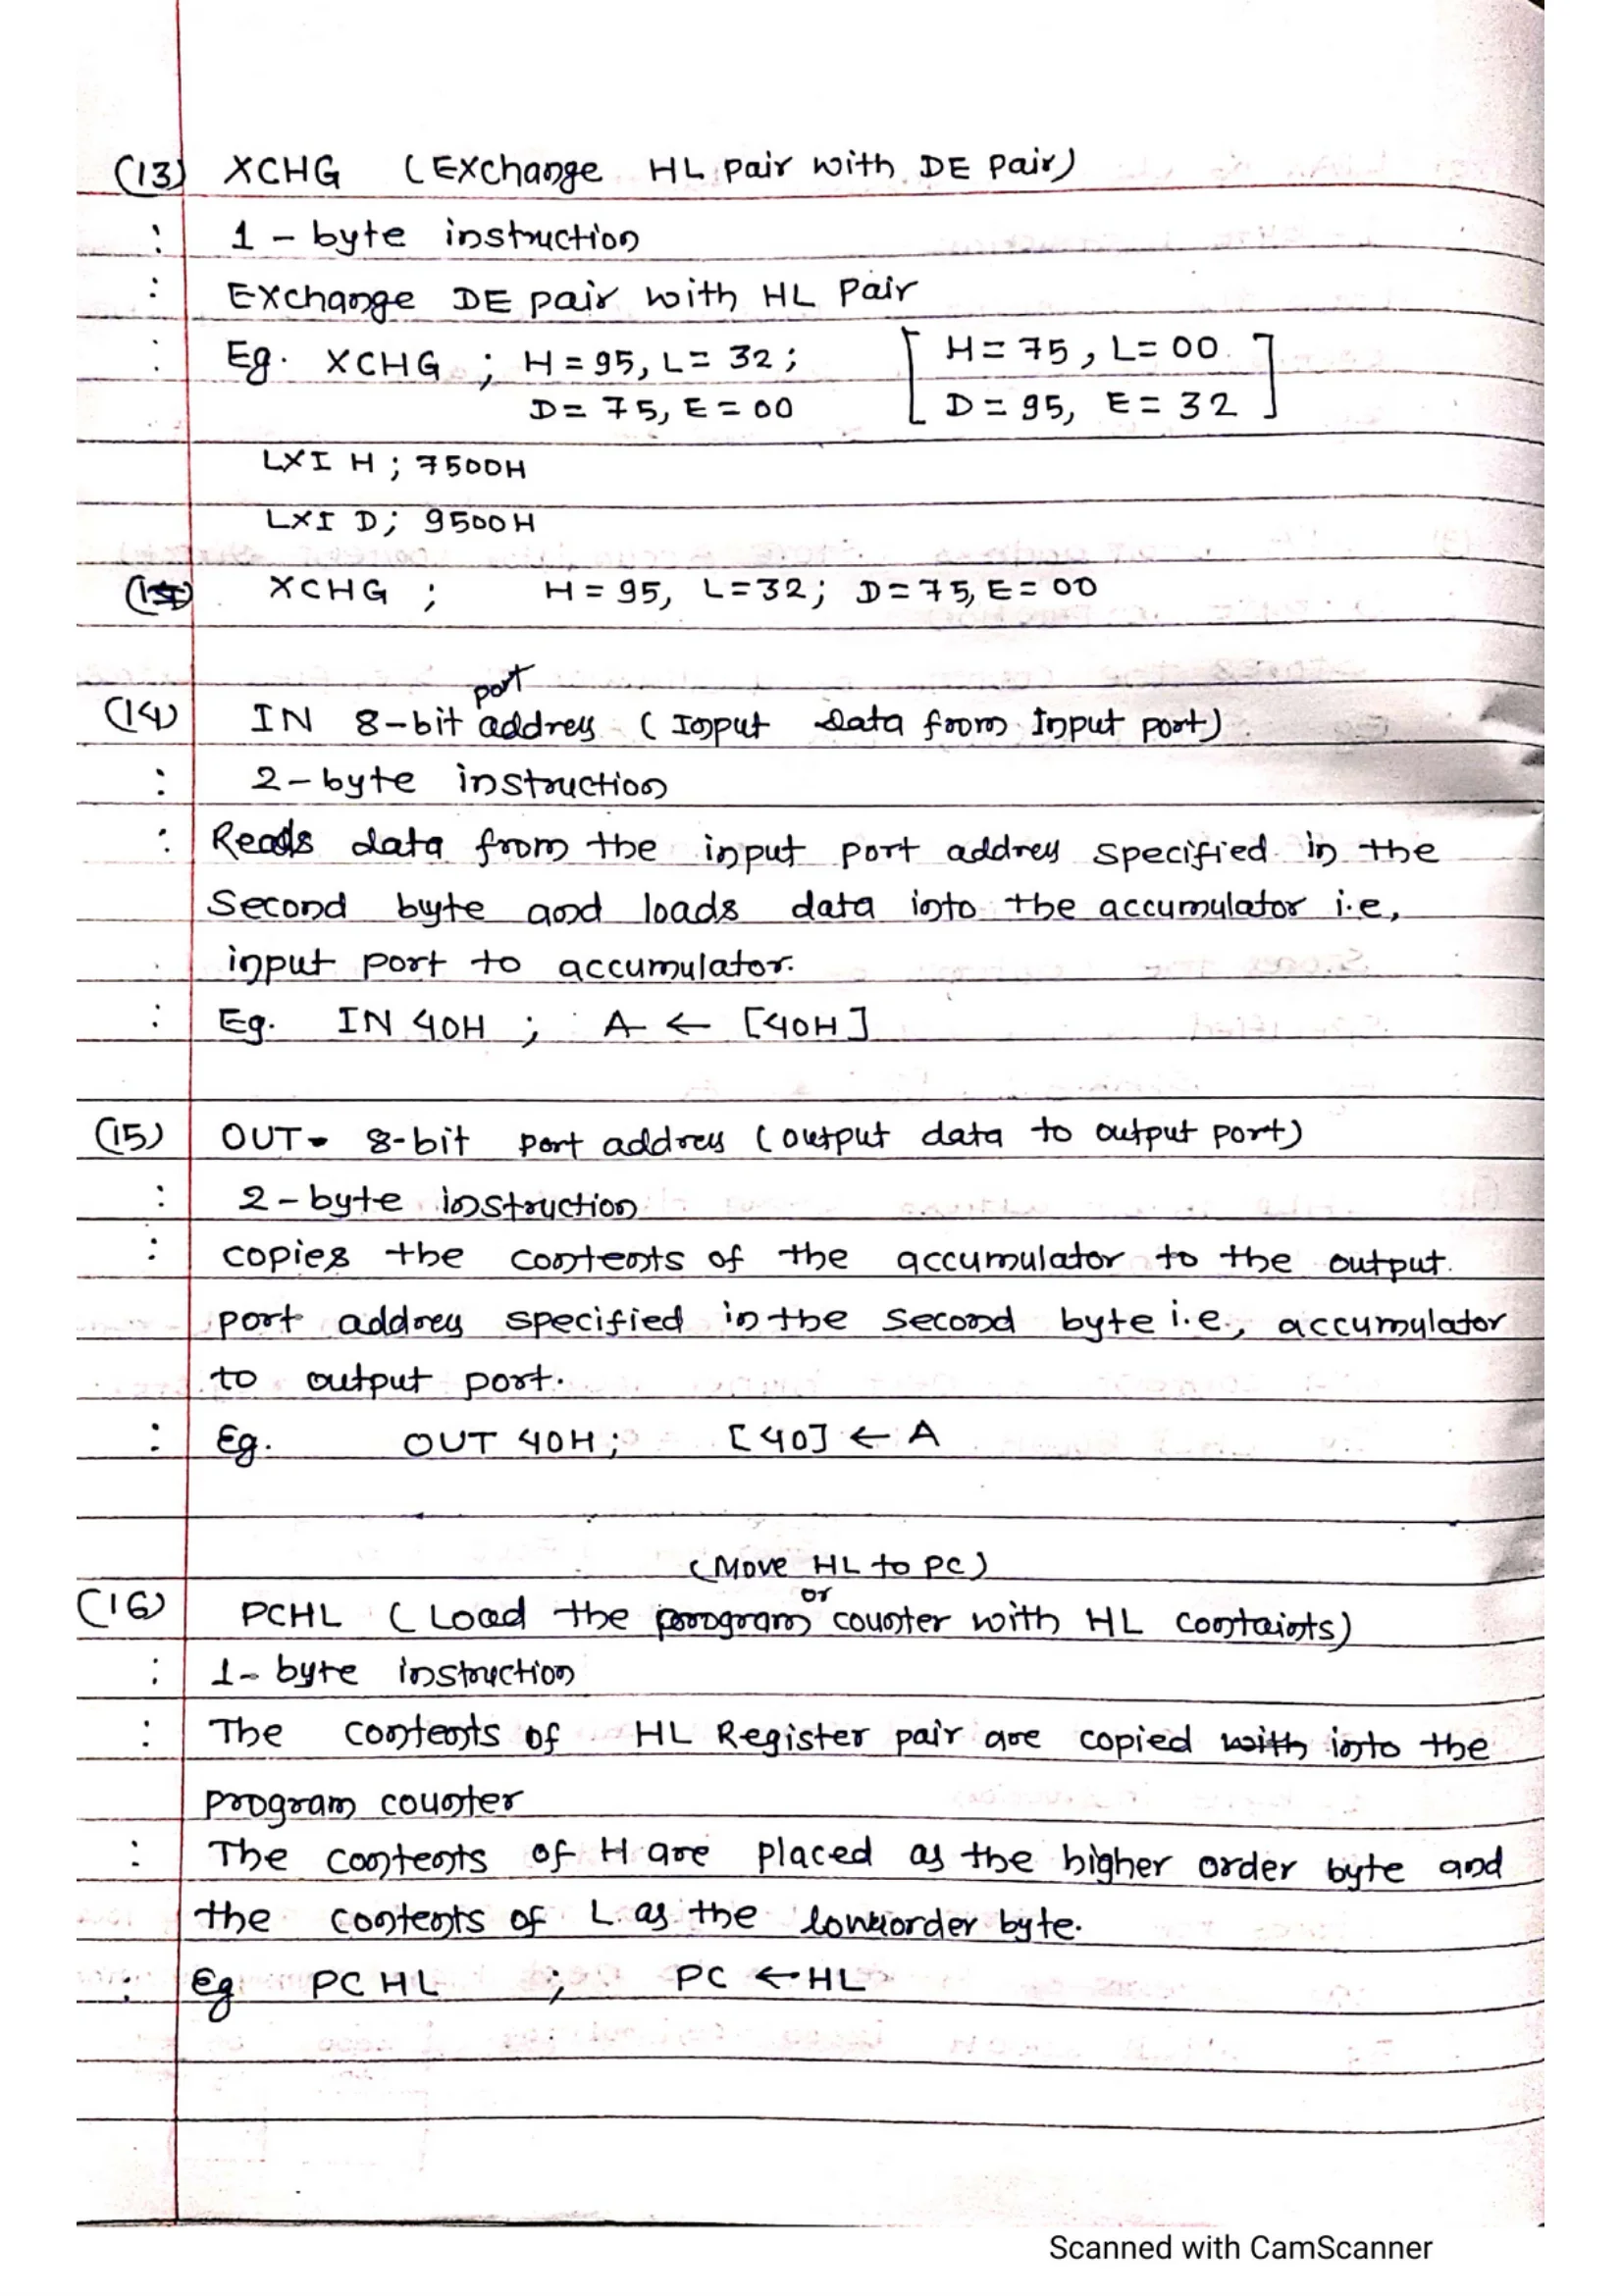 (13) XCHG (Exchange HL pair with DE pair)
: 1 - byte instruction
: Exchange DE pair with HL Pair
: Eg. XCHG ; H = 95, L = 32 ; [ H = 75 , L = 00
D = 75, E = 00 D = 95, E = 32 ]
LXI H ; 7500H
LXI D ; 9500H
XCHG ; H = 95, L = 32 ; D = 75, E = 00
port
(14) IN 8-bit address (Input data from Input port)
: 2-byte instruction
: Reads data from the input port address specified in the
Second byte and loads data into the accumulator i.e,
input port to accumulator.
: Eg. IN 40H ; A ← [40H]
(15) OUT - 8-bit port address (output data to output port)
: 2 - byte instruction
: copies the contents of the accumulator to the output
port address specified in the Second byte i.e., accumulator
to output port.
: Eg. OUT 40H ; [40] ← A
(Move HL to PC)
or
(16) PCHL (Load the program counter with HL containts)
: 1- byte instruction
: The contents of HL Register pair are copied with into the
program counter
: The contents of H are placed as the higher order byte and
the contents of L as the lower order byte.
: Eg PCHL ; PC ← HL
Scanned with CamScanner